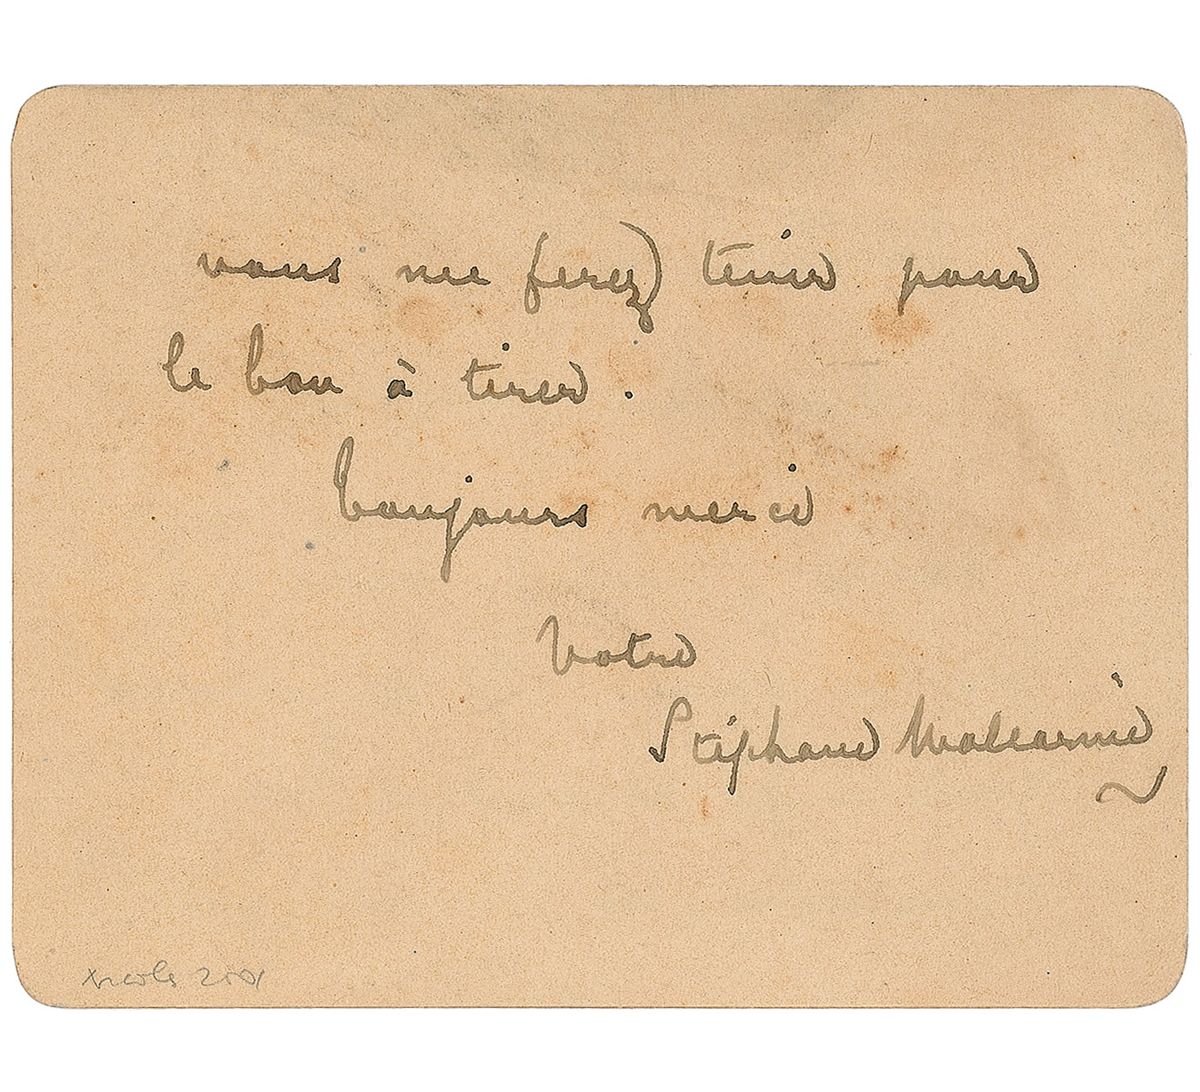 vous me ferez tenir pour
le bon à tirer.
Toujours merci
Votre
Stéphane Mallarmé